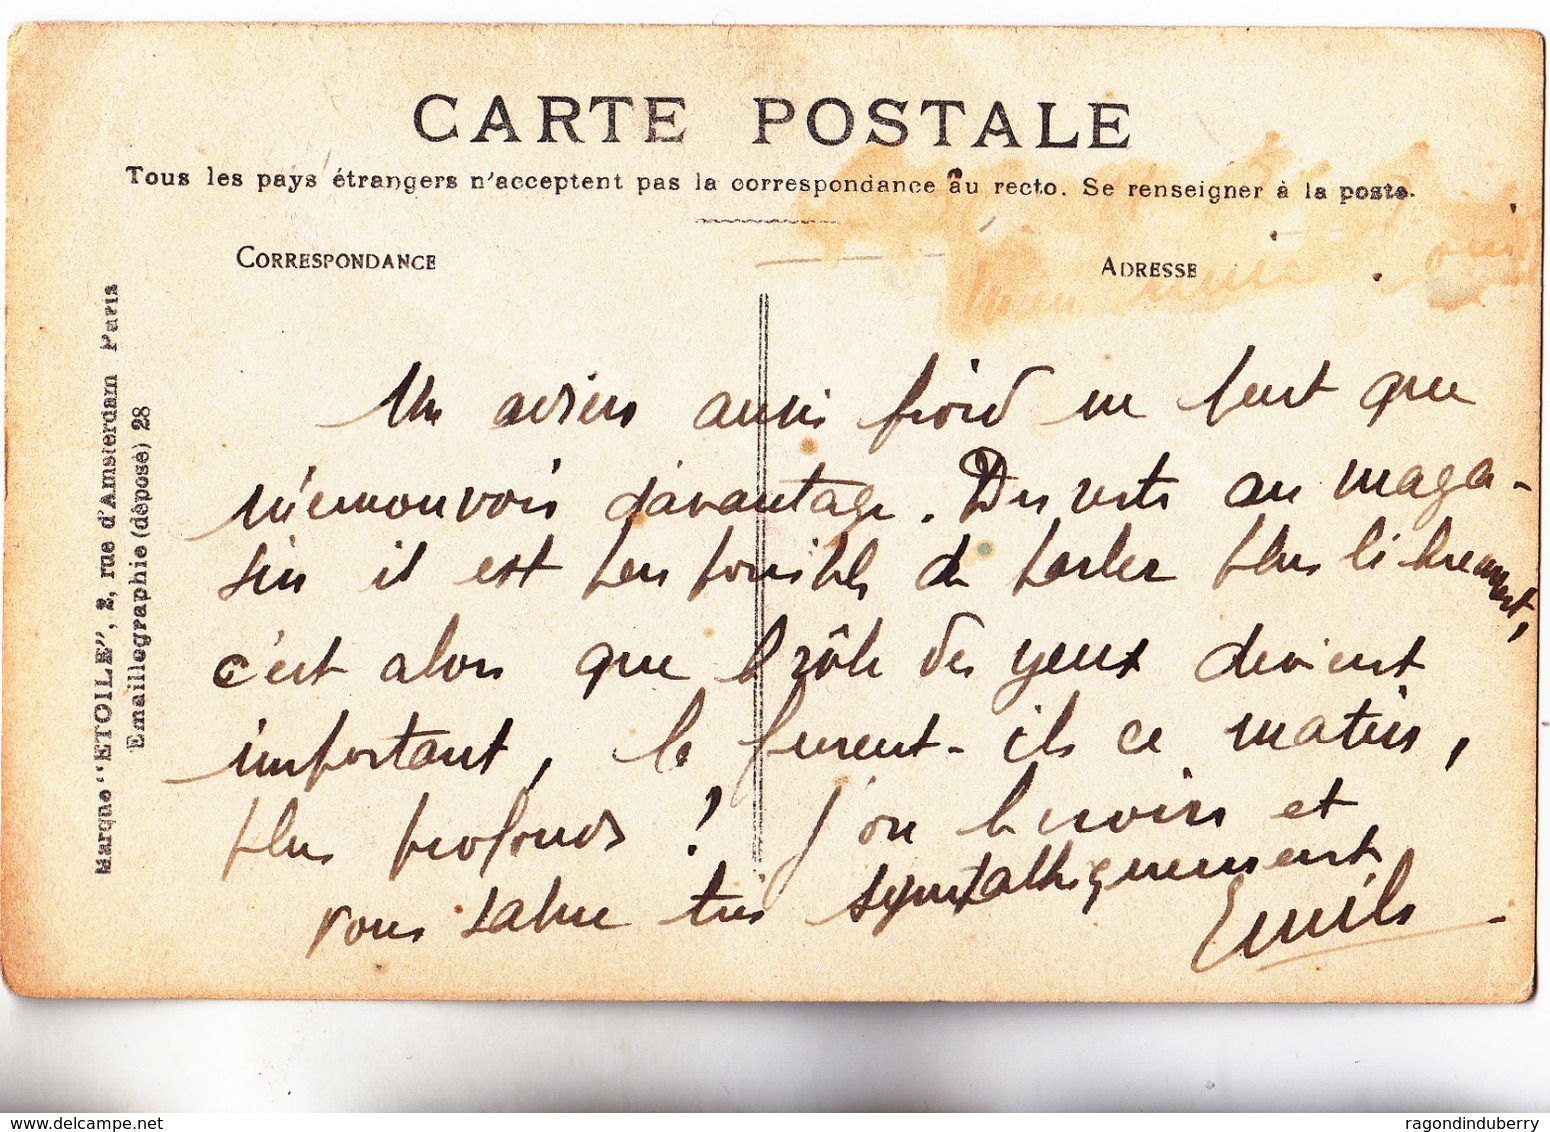 CARTE POSTALE
Tous les pays étrangers n'acceptent pas la correspondance au recto. Se renseigner à la poste.
CORRESPONDANCE
ADRESSE
Marque "ETOILE", 2, rue d'Amsterdam Paris
Emaillographie (déposé) 28
Un adieu aussi froid ne peut que
m'émouvoir davantage. Du reste au maga-
sin il est peu possible de parler plus librement,
c'est alors que le rôle des yeux devient
important, le furent-ils ce matin,
plus profonds ? J'en besoin et
vous salue très sympathiquement
Emile
delcampe.net
ragondinduberry